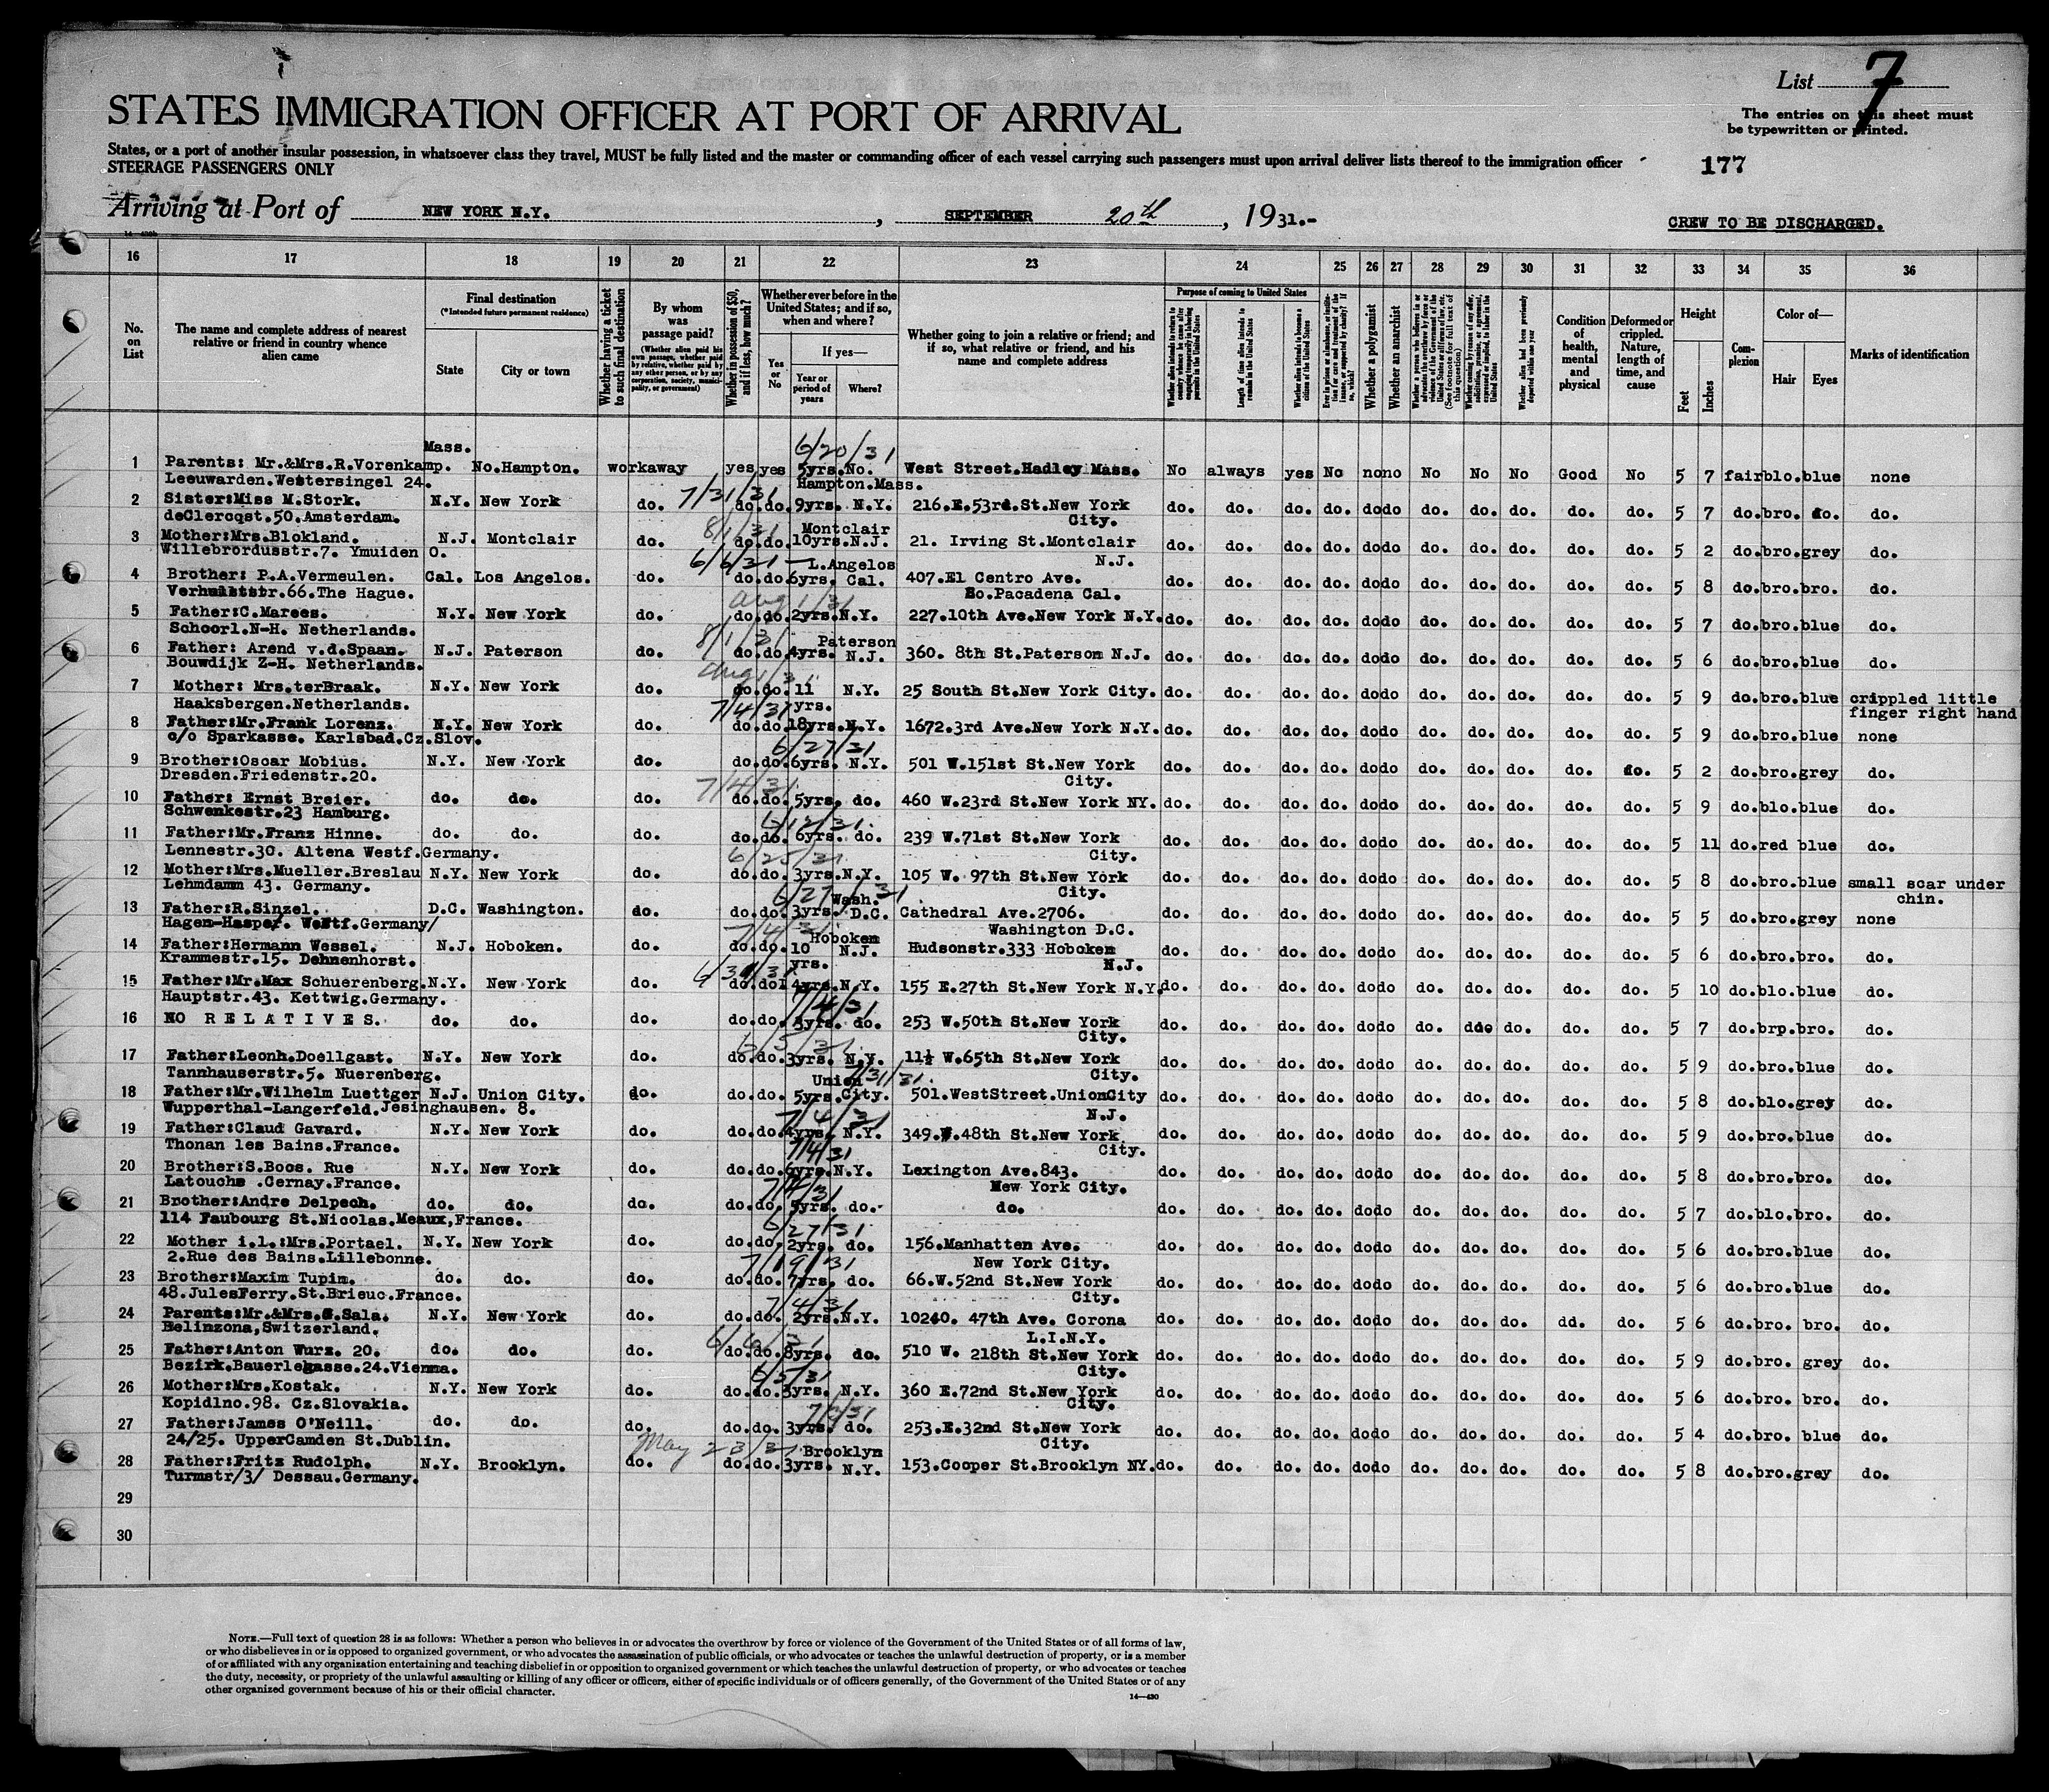 List 7
STATES IMMIGRATION OFFICER AT PORT OF ARRIVAL
The entries on this sheet must
be typewritten or printed.
States, or a port of another insular possession, in whatsoever class they travel, MUST be fully listed and the master or commanding officer of each vessel carrying such passengers must upon arrival deliver lists thereof to the immigration officer
STEERAGE PASSENGERS ONLY
177
Arriving at Port of NEW YORK N.Y. , SEPTEMBER 20th , 1931.-
CREW TO BE DISCHARGED.
16 17 18 19 20 21 22 23 24 25 26 27 28 29 30 31 32 33 34 35 36
No. on List
The name and complete address of nearest relative or friend in country whence alien came
Final destination
(*Intended future permanent residence)
State
City or town
Whether having a ticket to such final destination
By whom was passage paid?
(Whether alien paid his own passage, whether paid by relative, whether paid by any other person, or by any corporation, society, municipality, or government)
Whether in possession of $50, and if less, how much?
Whether ever before in the United States; and if so, when and where?
Yes or No
If yes—
Year or period of years
Where?
Whether going to join a relative or friend; and if so, what relative or friend, and his name and complete address
Purpose of coming to United States
Length of time alien intends to remain in the United States
Whether alien intends to become a citizen of the United States
Whether a polygamist
Whether an anarchist
Whether alien had been previously deported within one year
Condition of health, mental and physical
Deformed or crippled. Nature, length of time, and cause
Height
Feet
Inches
Complexion
Color of—
Hair
Eyes
Marks of identification
Mass. 6/20/31
1 Parents: Mr.&Mrs.R.Vorenkamp. No.Hampton. workaway yes yes 5yrs.No. West Street.Hadley Mass. No always yes No no no No No No Good No 5 7 fair blo. blue none
Leeuwarden.Westersingel 24. Hampton.Mass.
7/31/31
2 Sister:Miss M.Stork. N.Y. New York do. do. do. 9yrs. N.Y. 216.E.53rd.St.New York do. do. do. do. do do do. do. do. do. do. 5 7 do. bro. do. do.
deClercqst.50.Amsterdam. City.
8/1/31 Montclair
3 Mother:Mrs.Blokland. N.J. Montclair do. do. do. 10yrs.N.J. 21. Irving St.Montclair do. do. do. do. do do do. do. do. do. do. 5 2 do. bro. grey do.
Willebrordusstr.7. Ymuiden O. N.J.
6/6/31 — L.Angelos
4 Brother: P.A.Vermeulen. Cal. Los Angelos. do. do. do. 6yrs. Cal. 407.El Centro Ave. do. do. do. do. do do do. do. do. do. do. 5 8 do. bro. bro. do.
66.The Hague. So.Pacadena Cal.
Aug 1/31
5 Father:C.Marees. N.Y. New York do. do. do. 2yrs. N.Y. 227.10th Ave.New York N.Y. do. do. do. do. do do do. do. do. do. do. 5 7 do. bro. blue do.
Schoorl.N-H. Netherlands.
8/1/31 Paterson
6 Father: Arend v.d.Spaan. N.J. Paterson do. do. do. 4yrs. N.J. 360. 8th St.Paterson N.J. do. do. do. do. do do do. do. do. do. do. 5 6 do. bro. blue do.
Bouwdijk Z-H. Netherlands.
Aug 1/31
7 Mother: Mrs.terBraak. N.Y. New York do. do. 11 N.Y. 25 South St.New York City. do. do. do. do. do do do. do. do. do. do. 5 9 do. bro. blue crippled little
Haaksbergen.Netherlands. yrs. finger right hand
7/4/31
8 Father:Mr.Frank Lorenz. N.Y. New York do. do. 18yrs. N.Y. 1672.3rd Ave.New York N.Y. do. do. do. do. do do do. do. do. do. do. 5 9 do. bro. blue none
c/o Sparkasse. Karlsbad.Cz.Slov.
6/27/31
9 Brother:Oscar Mobius. N.Y. New York do. do. do. 6yrs. N.Y. 501 W.151st St.New York do. do. do. do. do do do. do. do. do. do. 5 2 do. bro. grey do.
Dresden.Friedenstr.20. City.
7/4/31
10 Father: Ernst Breier. do. do. do. do. do. 5yrs. do. 460 W.23rd St.New York NY. do. do. do. do. do do do. do. do. do. do. 5 9 do. blo. blue do.
Schwenkestr.23 Hamburg.
6/12/31
11 Father:Mr.Franz Hinne. do. do. do. do. do. 6yrs. do. 239 W.71st St.New York do. do. do. do. do do do. do. do. do. do. 5 11 do. red blue do.
Lennestr.30. Altena Westf.Germany. City.
6/25/31
12 Mother:Mrs.Mueller.Breslau N.Y. New York do. do. do. 3yrs. N.Y. 105 W. 97th St.New York do. do. do. do. do do do. do. do. do. do. 5 8 do. bro. blue small scar under
Lehmdamm 43. Germany. City. chin.
6/27/31 Wash.
13 Father:R.Sinzel. D.C. Washington. do. do. do. 3yrs. D.C. Cathedral Ave.2706. do. do. do. do. do do do. do. do. do. do. 5 5 do. bro. grey none
Hagen-Hasper. Westf.Germany/ Washington D.C.
7/4/31 Hoboken
14 Father:Hermann Wessel. N.J. Hoboken. do. do. do. 10 N.J. Hudsonstr.333 Hoboken do. do. do. do. do do do. do. do. do. do. 5 6 do. bro. bro. do.
Krammestr.15. Dehnenhorst. yrs. N.J.
6/30/31
15 Father:Mr.Max Schuerenberg. N.Y. New York do. do. do. 4yrs. N.Y. 155 E.27th St.New York N.Y. do. do. do. do. do do do. do. do. do. do. 5 10 do. blo. blue do.
Hauptstr.43. Kettwig.Germany.
7/4/31
16 NO RELATIVES. do. do. do. do. do. 3yrs. do. 253 W.50th St.New York do. do. do. do. do do do. do. do. do. do. 5 7 do. brp. bro. do.
City.
6/5/31
17 Father:Leonh.Doellgast. N.Y. New York do. do. do. 3yrs. N.Y. 11½ W.65th St.New York do. do. do. do. do do do. do. do. do. do. 5 9 do. bro. blue do.
Tannhauserstr.5. Nuerenberg. City.
Union 7/31/31
18 Father:Mr.Wilhelm Luettger N.J. Union City. do. do. do. 5yrs. City. 501.WestStreet.UnionCity do. do. do. do. do do do. do. do. do. do. 5 8 do. blo. grey do.
Wupperthal-Langerfeld.Jesinghausen. 8. N.J.
7/4/31
19 Father:Claud Gavard. N.Y. New York do. do. do. 4yrs. N.Y. 349.W.48th St.New York do. do. do. do. do do do. do. do. do. do. 5 9 do. bro. blue do.
Thonan les Bains.France. City.
7/4/31
20 Brother:S.Boos. Rue N.Y. New York do. do. do. 6yrs. N.Y. Lexington Ave.843. do. do. do. do. do do do. do. do. do. do. 5 8 do. bro. bro. do.
Latouche .Cernay.France. New York City.
7/4/31
21 Brother:Andre Delpech. do. do. do. do. do. 5yrs. do. do. do. do. do. do. do do do. do. do. do. do. 5 7 do. blo. bro. do.
114 Faubourg St.Nicolas.Meaux,France.
6/27/31
22 Mother i.l.:Mrs.Portael. N.Y. New York do. do. do. 2yrs. do. 156.Manhatten Ave. do. do. do. do. do do do. do. do. do. do. 5 6 do. bro. blue do.
2.Rue des Bains.Lillebonne. New York City.
7/19/31
23 Brother:Maxim Tupin. do. do. do. do. do. 7yrs. do. 66.W.52nd St.New York do. do. do. do. do do do. do. do. do. do. 5 6 do. bro. blue do.
48.JulesFerry.St.Brieuc.France. City.
7/4/31
24 Parents:Mr.&Mrs.G.Sala. N.Y. New York do. do. do. 2yrs. N.Y. 10240. 47th Ave. Corona do. do. do. do. do do do. do. do. dd. do. 5 6 do. bro. bro. do.
Belinzona,Switzerland. L.I.N.Y.
6/6/31
25 Father:Anton Wurz. 20. do. do. do. do. do. 8yrs. do. 510 W. 218th St.New York do. do. do. do. do do do. do. do. do. do. 5 9 do. bro. grey do.
Bezirk.Bauerlegasse.24.Vienna. City.
6/5/31
26 Mother:Mrs.Kostak. N.Y. New York do. do. do. 3yrs. N.Y. 360 E.72nd St.New York do. do. do. do. do do do. do. do. do. do. 5 6 do. bro. bro. do.
Kopidlno.98. Cz.Slovakia. City.
27 Father:James O'Neill. do. do. do. do. do. 3yrs. do. 253.E.32nd St.New York do. do. do. do. do do do. do. do. do. do. 5 4 do. bro. blue do.
24/25. UpperCamden St.Dublin. City.
May 23/31 Brooklyn
28 Father:Fritz Rudolph. N.Y. Brooklyn. do. do. do. 3yrs. N.Y. 153.Cooper St.Brooklyn NY. do. do. do. do. do do do. do. do. do. do. 5 8 do. bro. grey do.
Turmstr/3/ Dessau.Germany.
29
30
NOTE.—Full text of question 28 is as follows: Whether a person who believes in or advocates the overthrow by force or violence of the Government of the United States or of all forms of law,
or who disbelieves in or is opposed to organized government, or who advocates the assassination of public officials, or who advocates or teaches the unlawful destruction of property, or is a member
of or affiliated with any organization entertaining and teaching disbelief in or opposition to organized government or which teaches the unlawful destruction of property, or who advocates or teaches
the duty, necessity, or propriety of the unlawful assaulting or killing of any officer or officers, either of specific individuals or of officers generally, of the Government of the United States or of any
other organized government because of his or their official character.
14—430